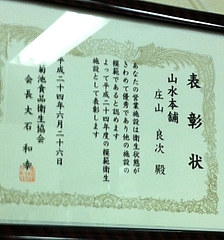 表彰状
山水本舗
庄山良次殿
あなたの営業施設は衛生状態が
きわめて優秀であり他の施設の
模範であると認めます
よって平成二十四年度の模範衛生
施設として表彰します
平成二十四年六月二十六日
菊池食品衛生協会
会長大石和幸